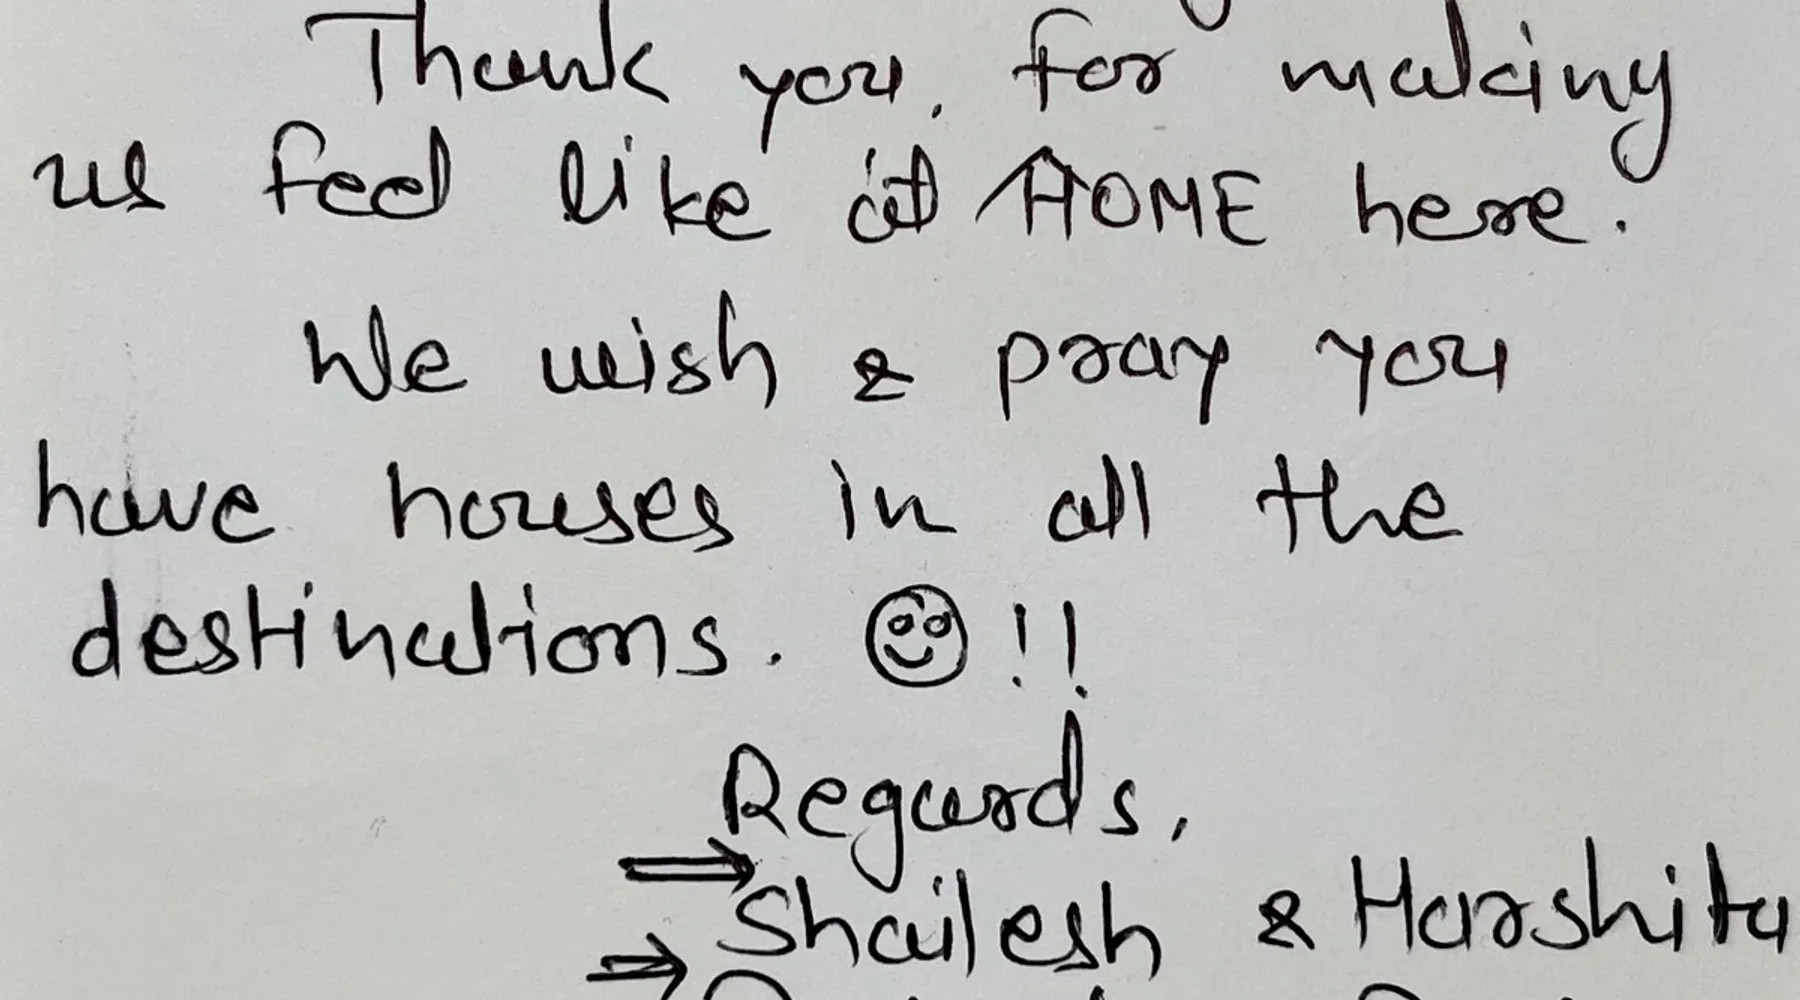 Thank you, for making
us feel like at HOME here.
We wish & pray you
have houses in all the
destinations. ☺!!
Regards,
⇒ Shailesh & Harshita